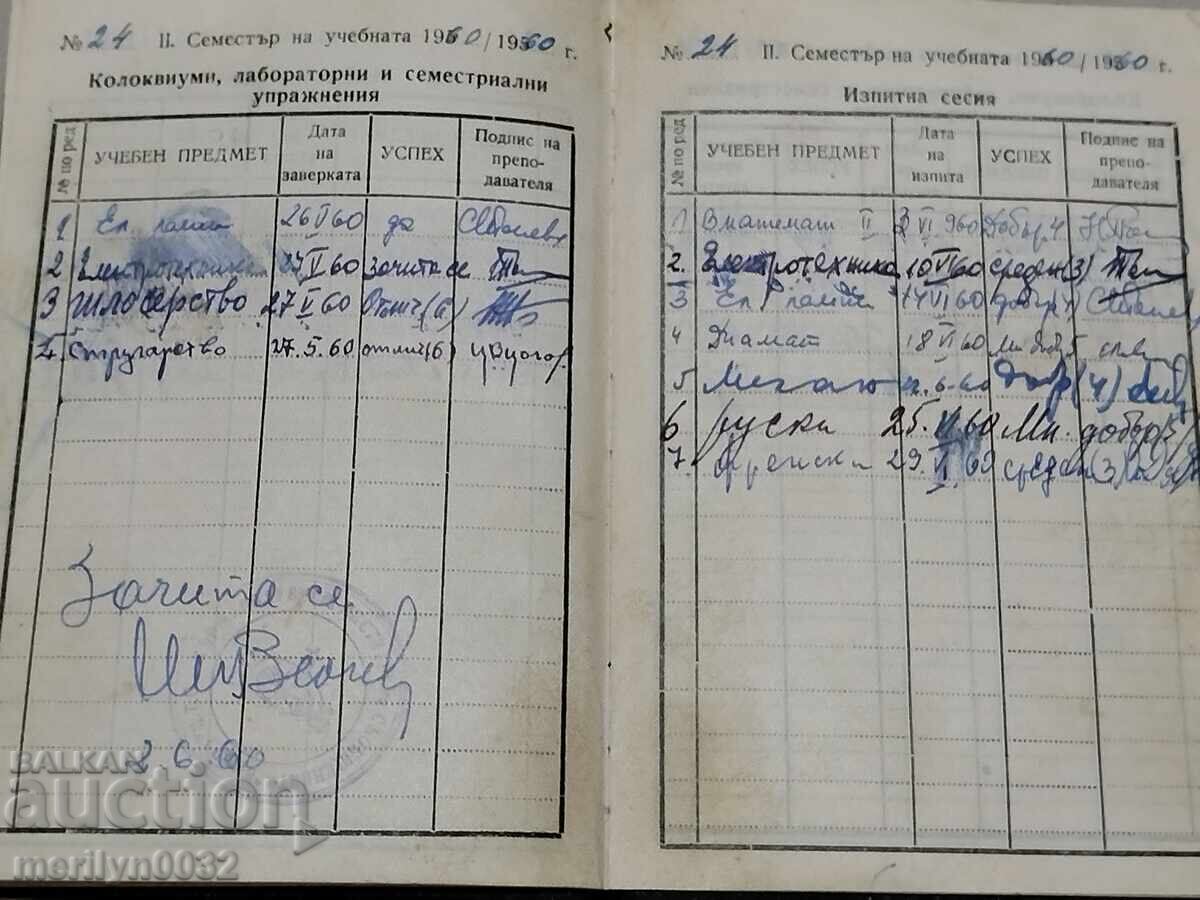 № 24 II. Семестър на учебната 1960/1960 г.
Колоквиуми, лабораторни и семестриални
упражнения
№ по ред
УЧЕБЕН ПРЕДМЕТ
Дата
на
заверката
УСПЕХ
Подпис на
препо-
давателя
1 Ел. 26 V 60 да
2 Електротехника 27 V 60 зачита се
3 Шлосерство 27 V 60 Отлич (6)
4. Стругарство 27.5.60 отлич (6)
Зачита се
2.6.60
№ 24 II. Семестър на учебната 1960/1960 г.
Изпитна сесия
№ по ред
УЧЕБЕН ПРЕДМЕТ
Дата
на
изпита
УСПЕХ
Подпис на
препо-
давателя
1 В математ II 3 VI 960 Добър 4
2. Електротехника 10 VI 60 среден (3)
3 Ел. 14 VI 60 добър (4)
4 Диамат 18 VI 60 5
5 6.60 Добр (4)
6 руски 25. VI 60 Мн. добър 5
7. френски 29. VI. 60 среден (3)
BALKAN
auction
merilyn0032